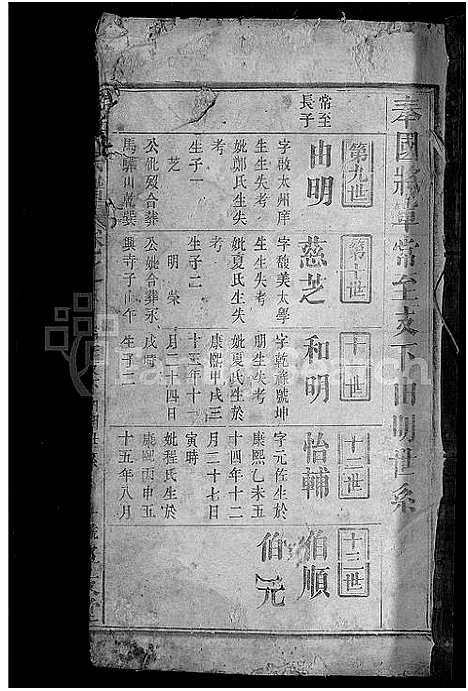 奉國將軍常至支下由明世系
第九世
常至
長子
由明
字啟太州庠
生生失考
妣鄭氏生失
考
生子一
芝
公妣歿合葬
第十世
慈芝
字馥美太學
生生失考
妣夏氏生失
考
生子二
明 榮
公妣合葬永
興寺子山午
十一世
和明
字乾滌號坤
明生失考
妣夏氏生於
康熙甲戌三
十三年十一
月二十四日
戌時
生子二
十二世
怡輔
字元佐生於
康熙乙未五
十四年十二
月二十七日
寅時
妣程氏生於
康熙丙申五
十五年八月
十三世
伯順
伯元